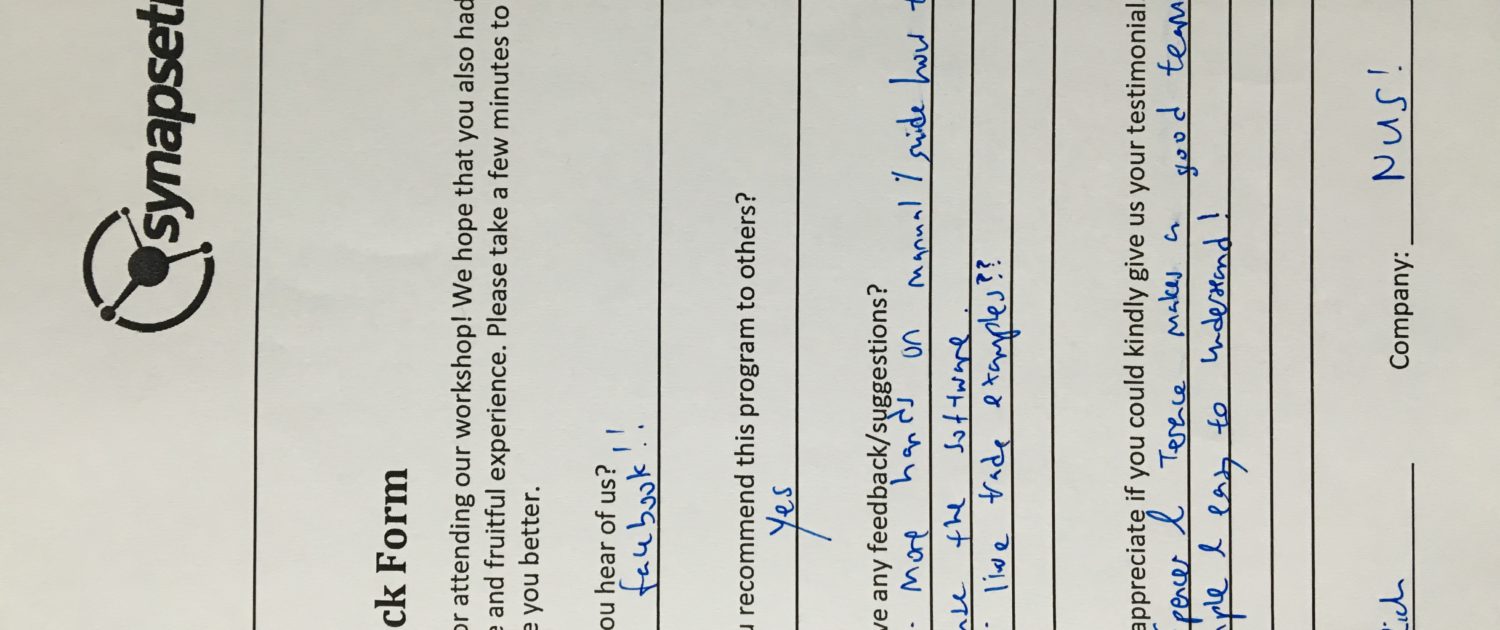 synapsetr
ck Form
or attending our workshop! We hope that you also had
e and fruitful experience. Please take a few minutes to
e you better.
ou hear of us?
facebook!!
u recommend this program to others?
Yes
ve any feedback/suggestions?
· More hands on manual / guide how t
use the software.
· live trade examples??
appreciate if you could kindly give us your testimonial
pencer & Terence makes a good team
ple & easy to understand!
Company: NUS!